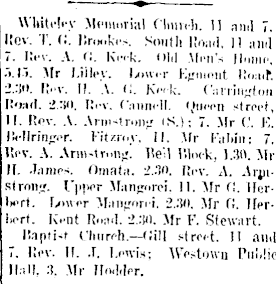 Whiteley Memorial Church. 11 and 7,
Rev. T. G. Brookes. South Road, 11 and
7, Rev. A. G. Keck. Old Men's Home,
5.15, Mr Lilley. Lower Egmont Road,
2.30, Rev. H. A. G. Keck. Carrington
Road, 2.30, Rev. Cannell. Queen street,
11, Rev. A. Armstrong (S.); 7, Mr C. E.
Bellringer. Fitzroy, 11, Mr Fabin; 7,
Rev. A. Armstrong. Bell Block, 1.30, Mr
H. James. Omata, 2.30, Rev. A. Arm-
strong. Upper Mangorei, 11, Mr G. Her-
bert. Lower Mangorei, 2.30, Mr G. Her-
bert. Kent Road, 2.30, Mr F. Stewart.
Baptist Church.—Gill street, 11 and
7, Rev. H. J. Lewis; Westown Public
Hall, 3, Mr Hodder.